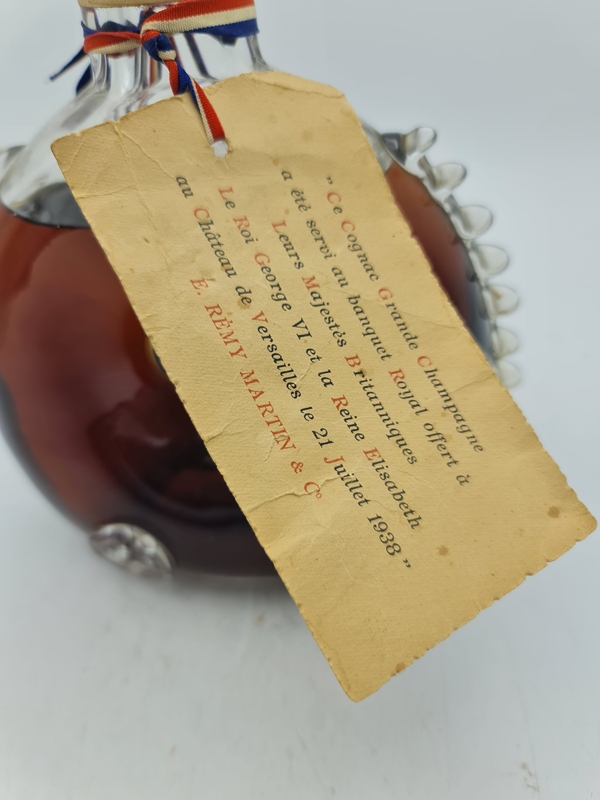 "Ce Cognac Grande Champagne
a été servi au banquet Royal offert à
Leurs Majestés Britanniques
Le Roi George VI et la Reine Elisabeth
au Château de Versailles le 21 Juillet 1938"
E. RÉMY MARTIN & Cº